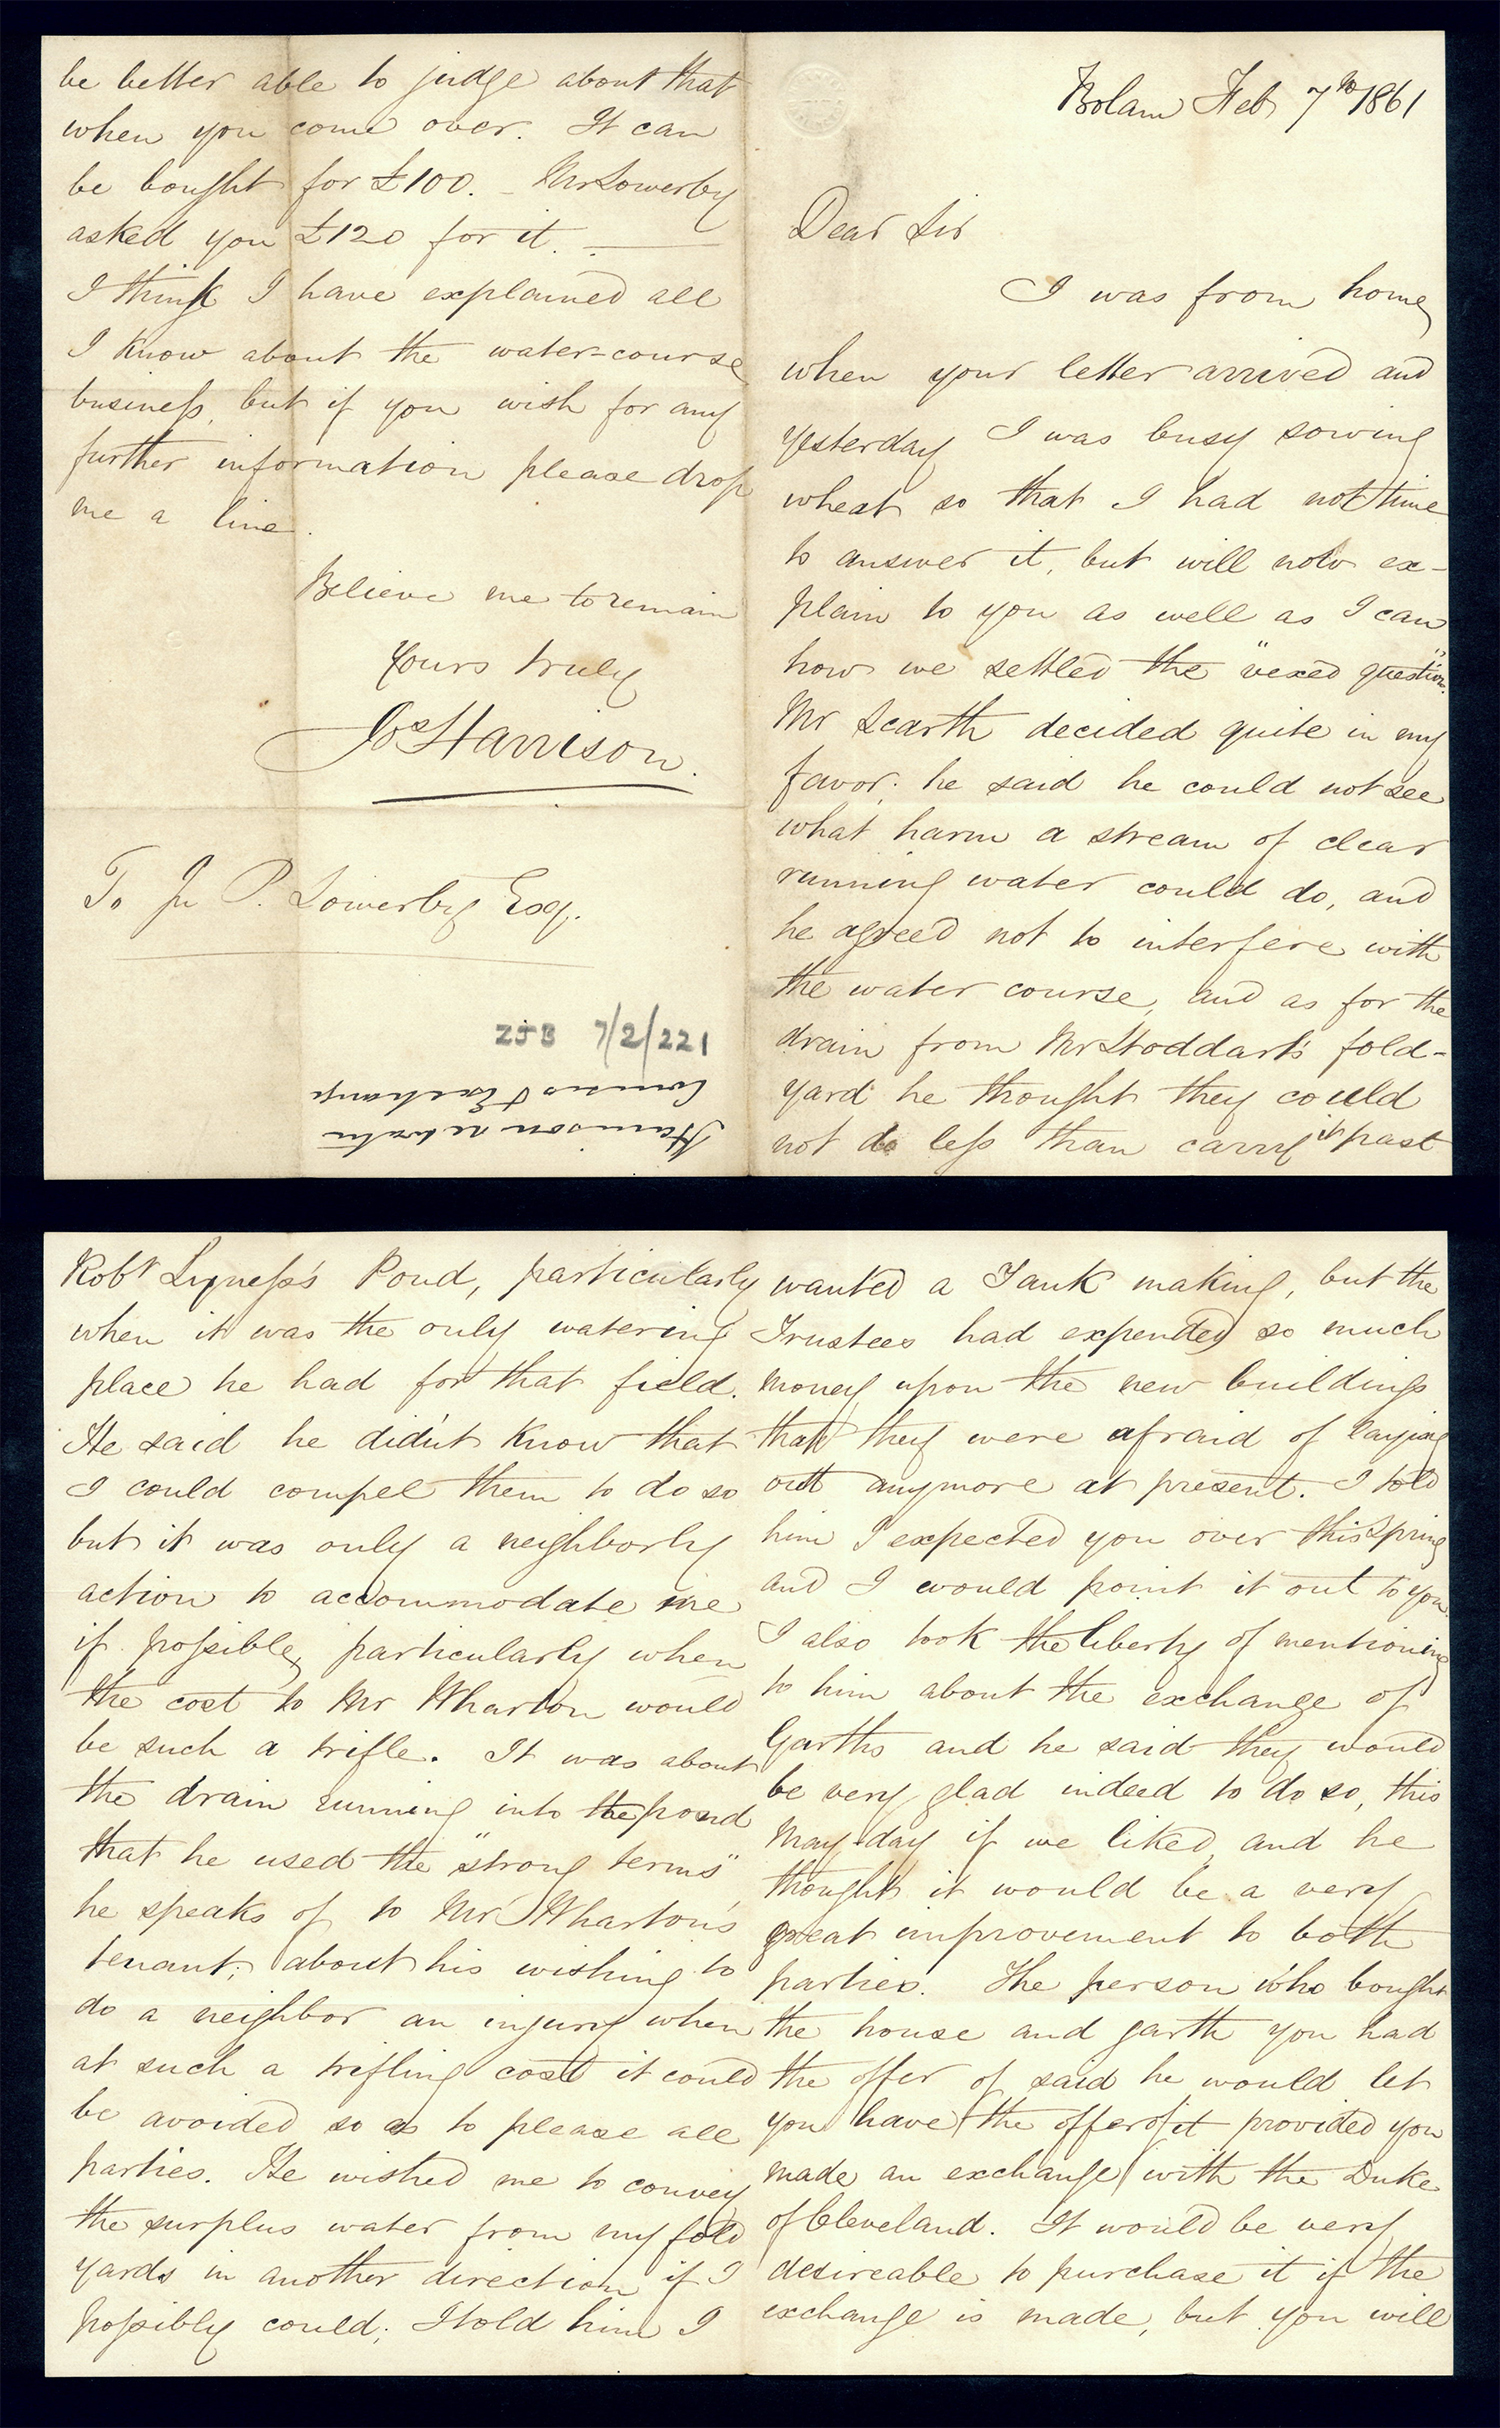 Bolam Feb 7th 1861
Dear Sir
I was from home
when your letter arrived and
yesterday I was busy sowing
wheat so that I had not time
to answer it, but will now ex-
plain to you as well as I can
how we settled the "vexed question".
Mr Scarth decided quite in my
favor; he said he could not see
what harm a stream of clear
running water could do, and
he agreed not to interfere with
the water course, and as for the
drain from Mr Stoddart's fold-
yard he thought they could
not do less than carry it past
Robt Lyness's Pond, particularly
when it was the only watering
place he had for that field.
He said he didn't know that
I could compel them to do so
but it was only a neighborly
action to accommodate me
if possible, particularly when
the cost to Mr Wharton would
be such a trifle. It was about
the drain running into the pond
that he used the "strong terms"
he speaks of to Mr Wharton's
tenant; about his wishing to
do a neighbor an injury when
at such a trifling cost it could
be avoided so as to please all
parties. He wished me to convey
the surplus water from my fold
yards in another direction if I
possibly could; I told him I
wanted a Tank making, but the
Trustees had expended so much
money upon the new buildings
that they were afraid of laying
out anymore at present. I told
him I expected you over this Spring
and I would point it out to you.
I also took the liberty of mentioning
to him about the exchange of
Garths and he said they would
be very glad indeed to do so, this
May-day if we liked, and he
thought it would be a very
great improvement to both
parties. The person who bought
the house and garth you had
the offer of said he would let
you have the offer of it provided you
made an exchange with the Duke
of Cleveland. It would be very
desireable to purchase it if the
exchange is made, but you will
be better able to judge about that
when you come over. It can
be bought for £100. – Mr Lowerby
asked you £120 for it. –
I think I have explained all
I know about the water-course
business, but if you wish for any
further information please drop
me a line.
Believe me to remain
Yours truly
Jos Harrison.
To Jn P. Lowerby Esq.
ZJB 7/2/221
Harrison re water
Course & Exchange